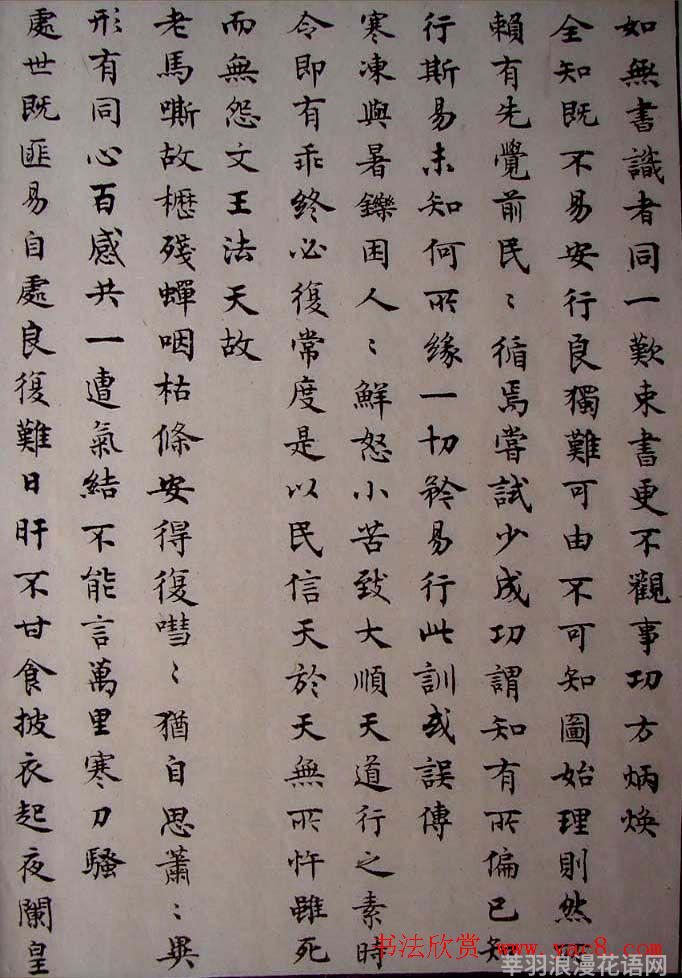 如無書識者同一歎束書更不觀事功方炳煥
全知既不易安行良獨難可由不可知圖始理則然
賴有先覺前民〻循焉嘗試少成功謂知有所偏已知
行斯易未知何所緣一切矜易行此訓或誤傳
寒凍與暑鑠困人〻鮮怒小苦致大順天道行之素時
令即有乖終必復常度是以民信天於天無所忤雖死
而無怨文王法天故
老馬嘶故櫪殘蟬咽枯條安得復嘒〻猶自思蕭〻異
形有同心百感共一遭氣結不能言萬里寒刀騷
處世既匪易自處良復難日旰不甘食披衣起夜闌皇
书法欣赏 www.yac8.com
莘羽浪漫花语网